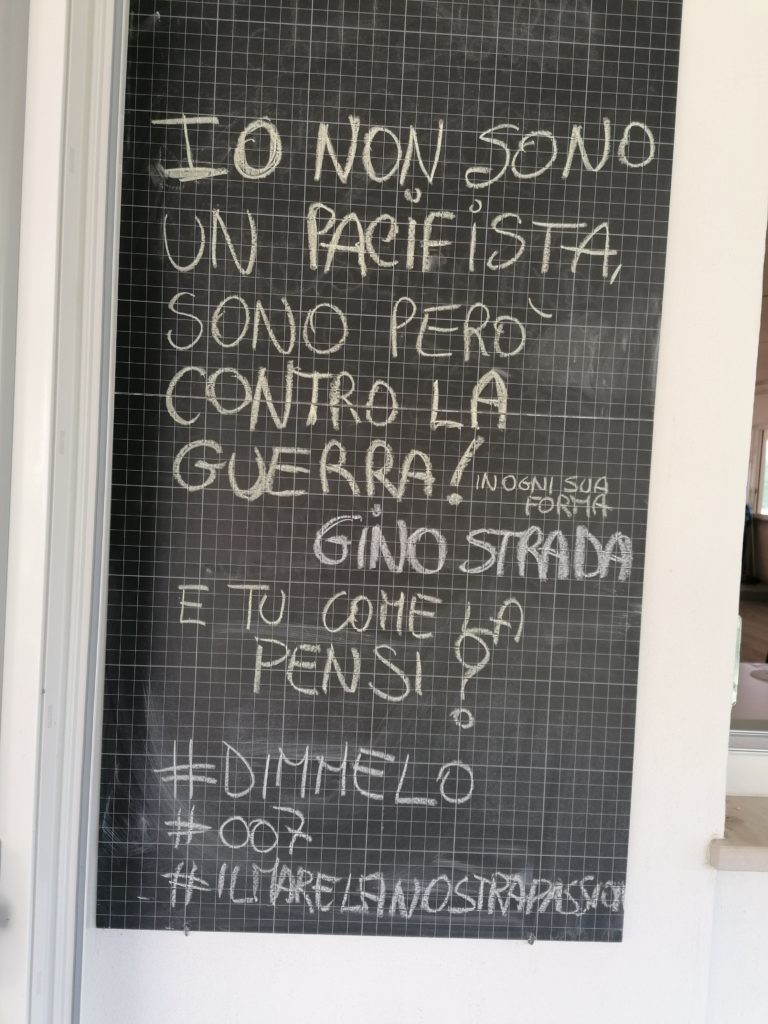 IO NON SONO
UN PACIFISTA,
SONO PERÒ
CONTRO LA
GUERRA! IN OGNI SUA
FORMA
GINO STRADA
E TU COME LA
PENSI?
#DIMMELO
#007
#ILMARELANOSTRAPASSION